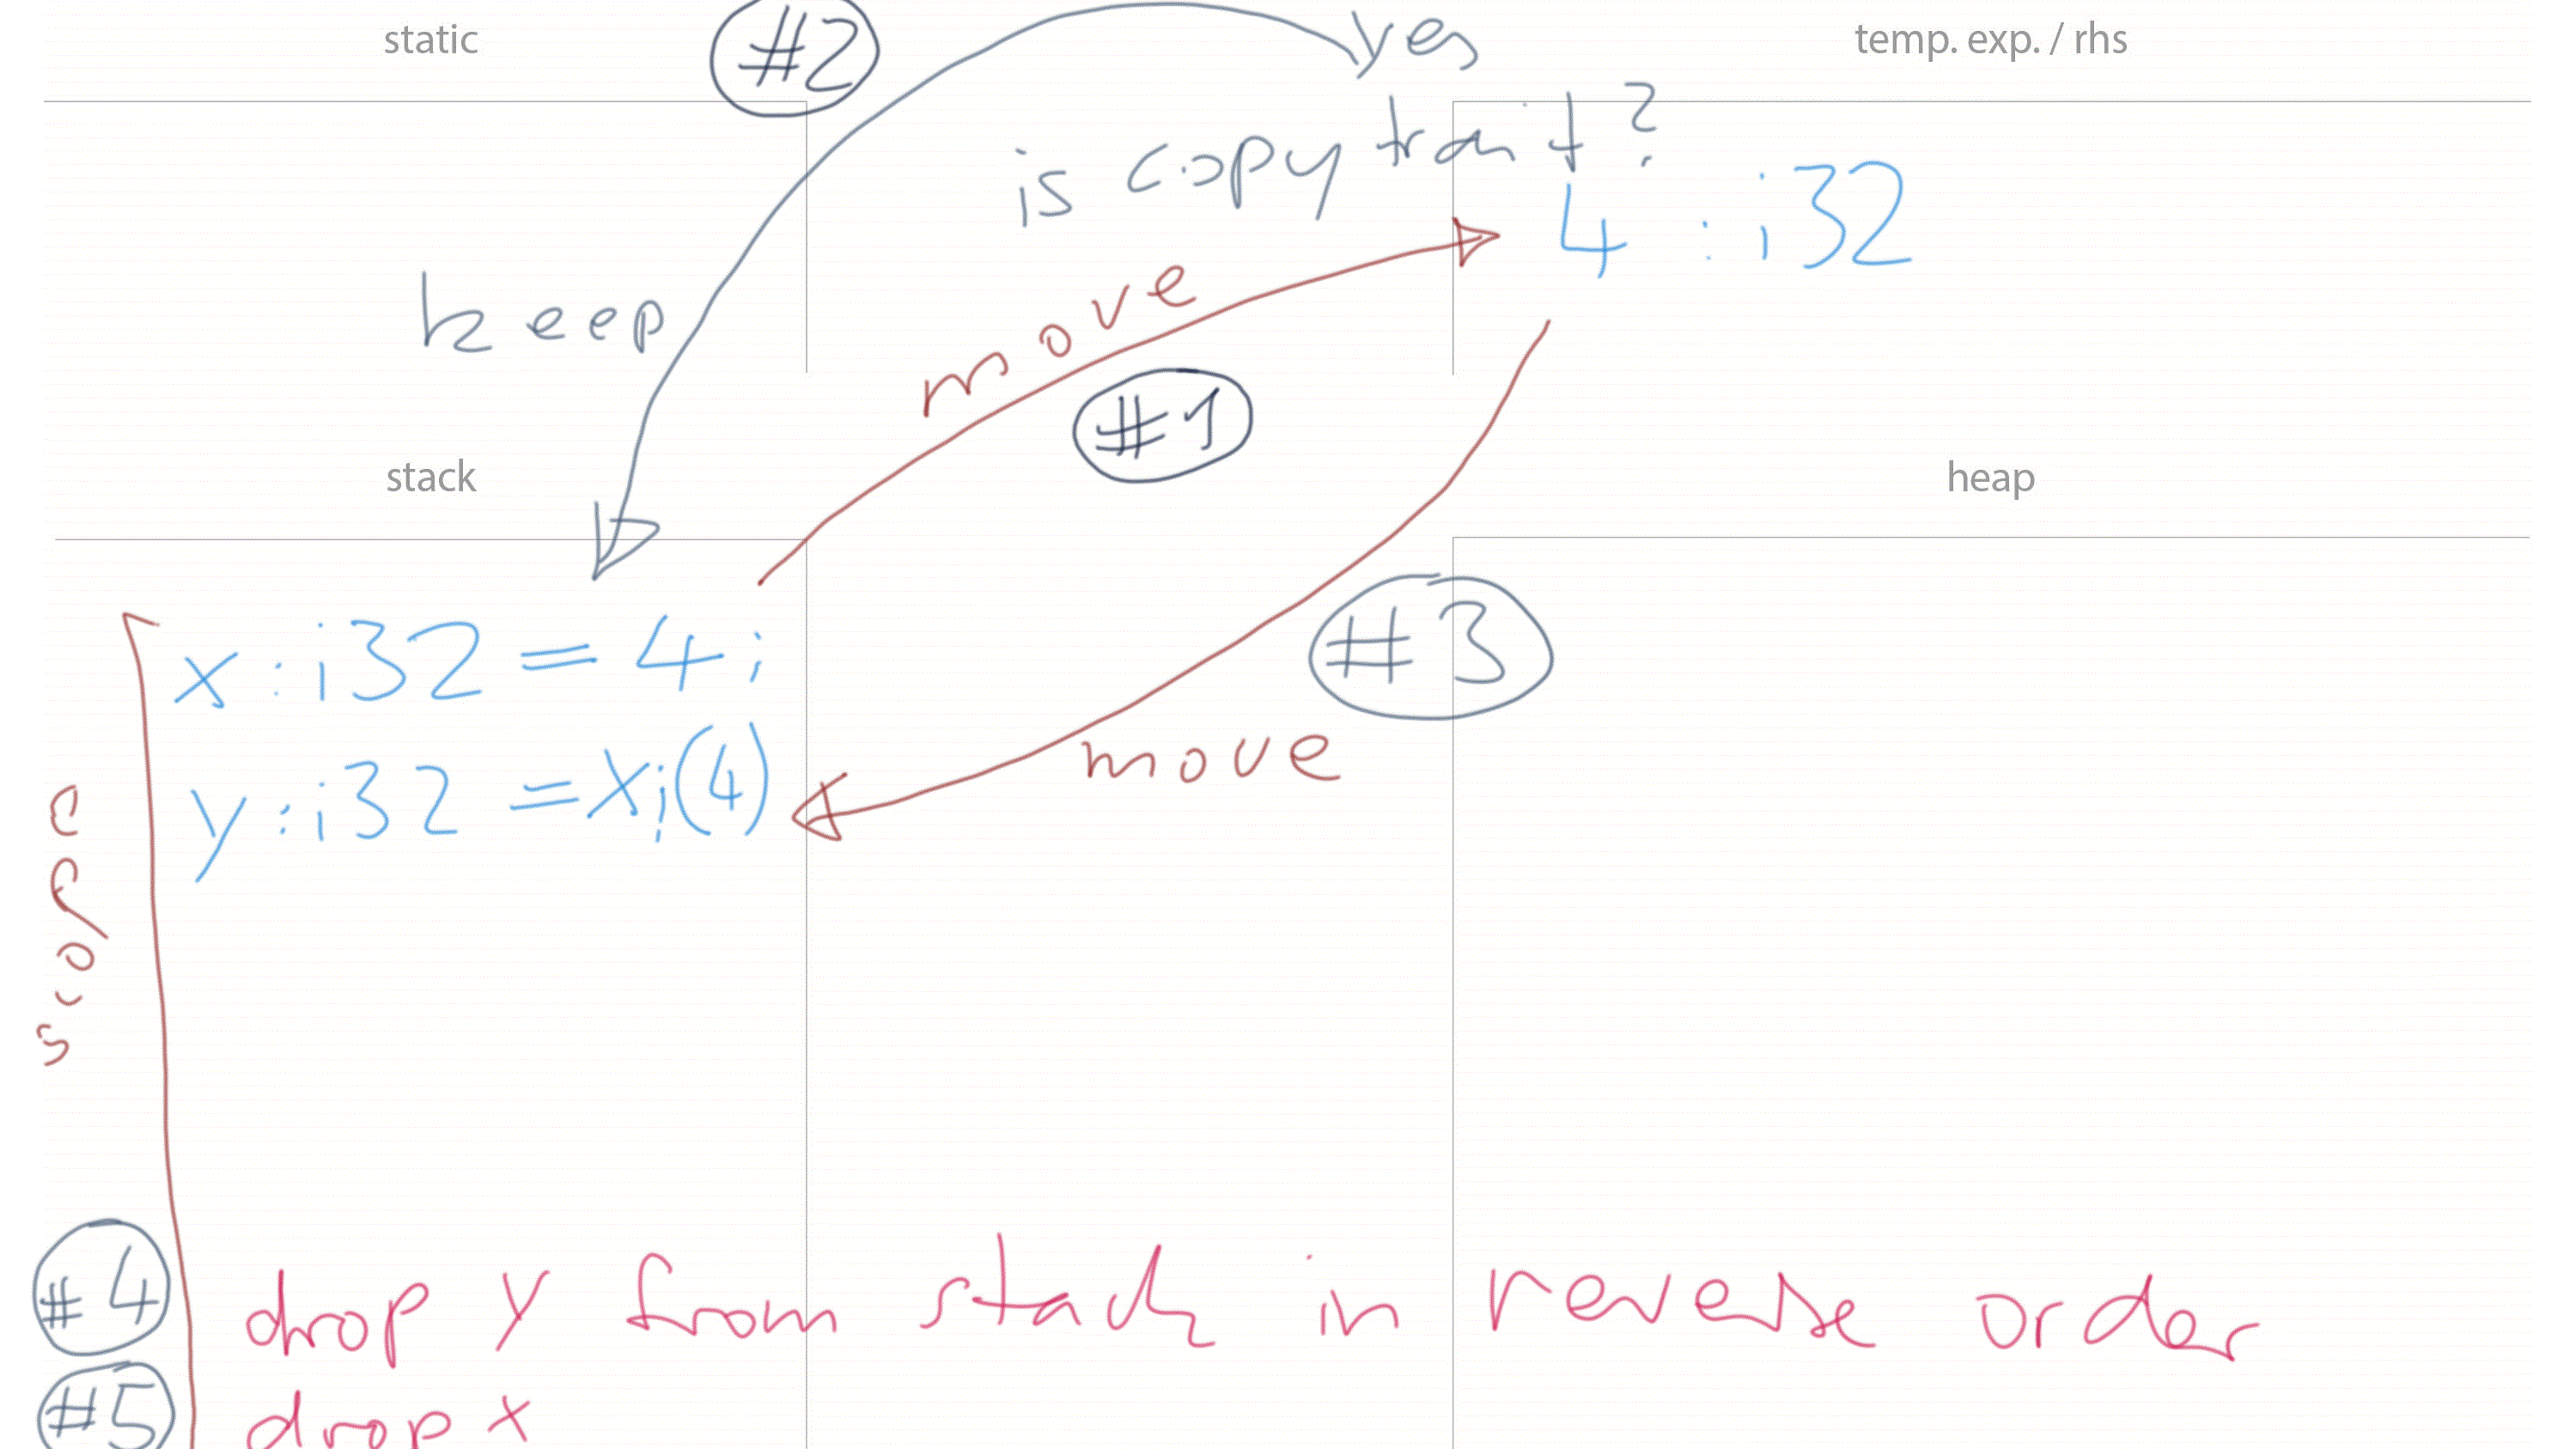 static
#2
yes
temp. exp. / rhs
is copy trait?
4 : i32
keep
move
#1
stack
heap
x : i32 = 4;
#3
y : i32 = x; (4)
move
scope
#4 drop y from stack in reverse order
#5 drop x